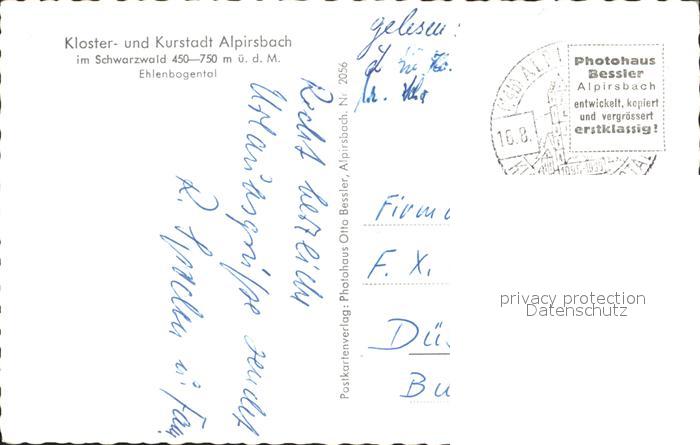 Kloster- und Kurstadt Alpirsbach
im Schwarzwald 450—750 m ü. d. M.
Ehlenbogental
Recht herzliche
Urlaubsgrüße sendet
R. u. Fam
Postkartenverlag: Photohaus Otto Bessler, Alpirsbach. Nr 2056
gelesen:
Firm
F. X.
Dü
Bu
16.8.
Photohaus
Bessler
Alpirsbach
entwickelt, kopiert
und vergrössert
erstklassig!
privacy protection
Datenschutz